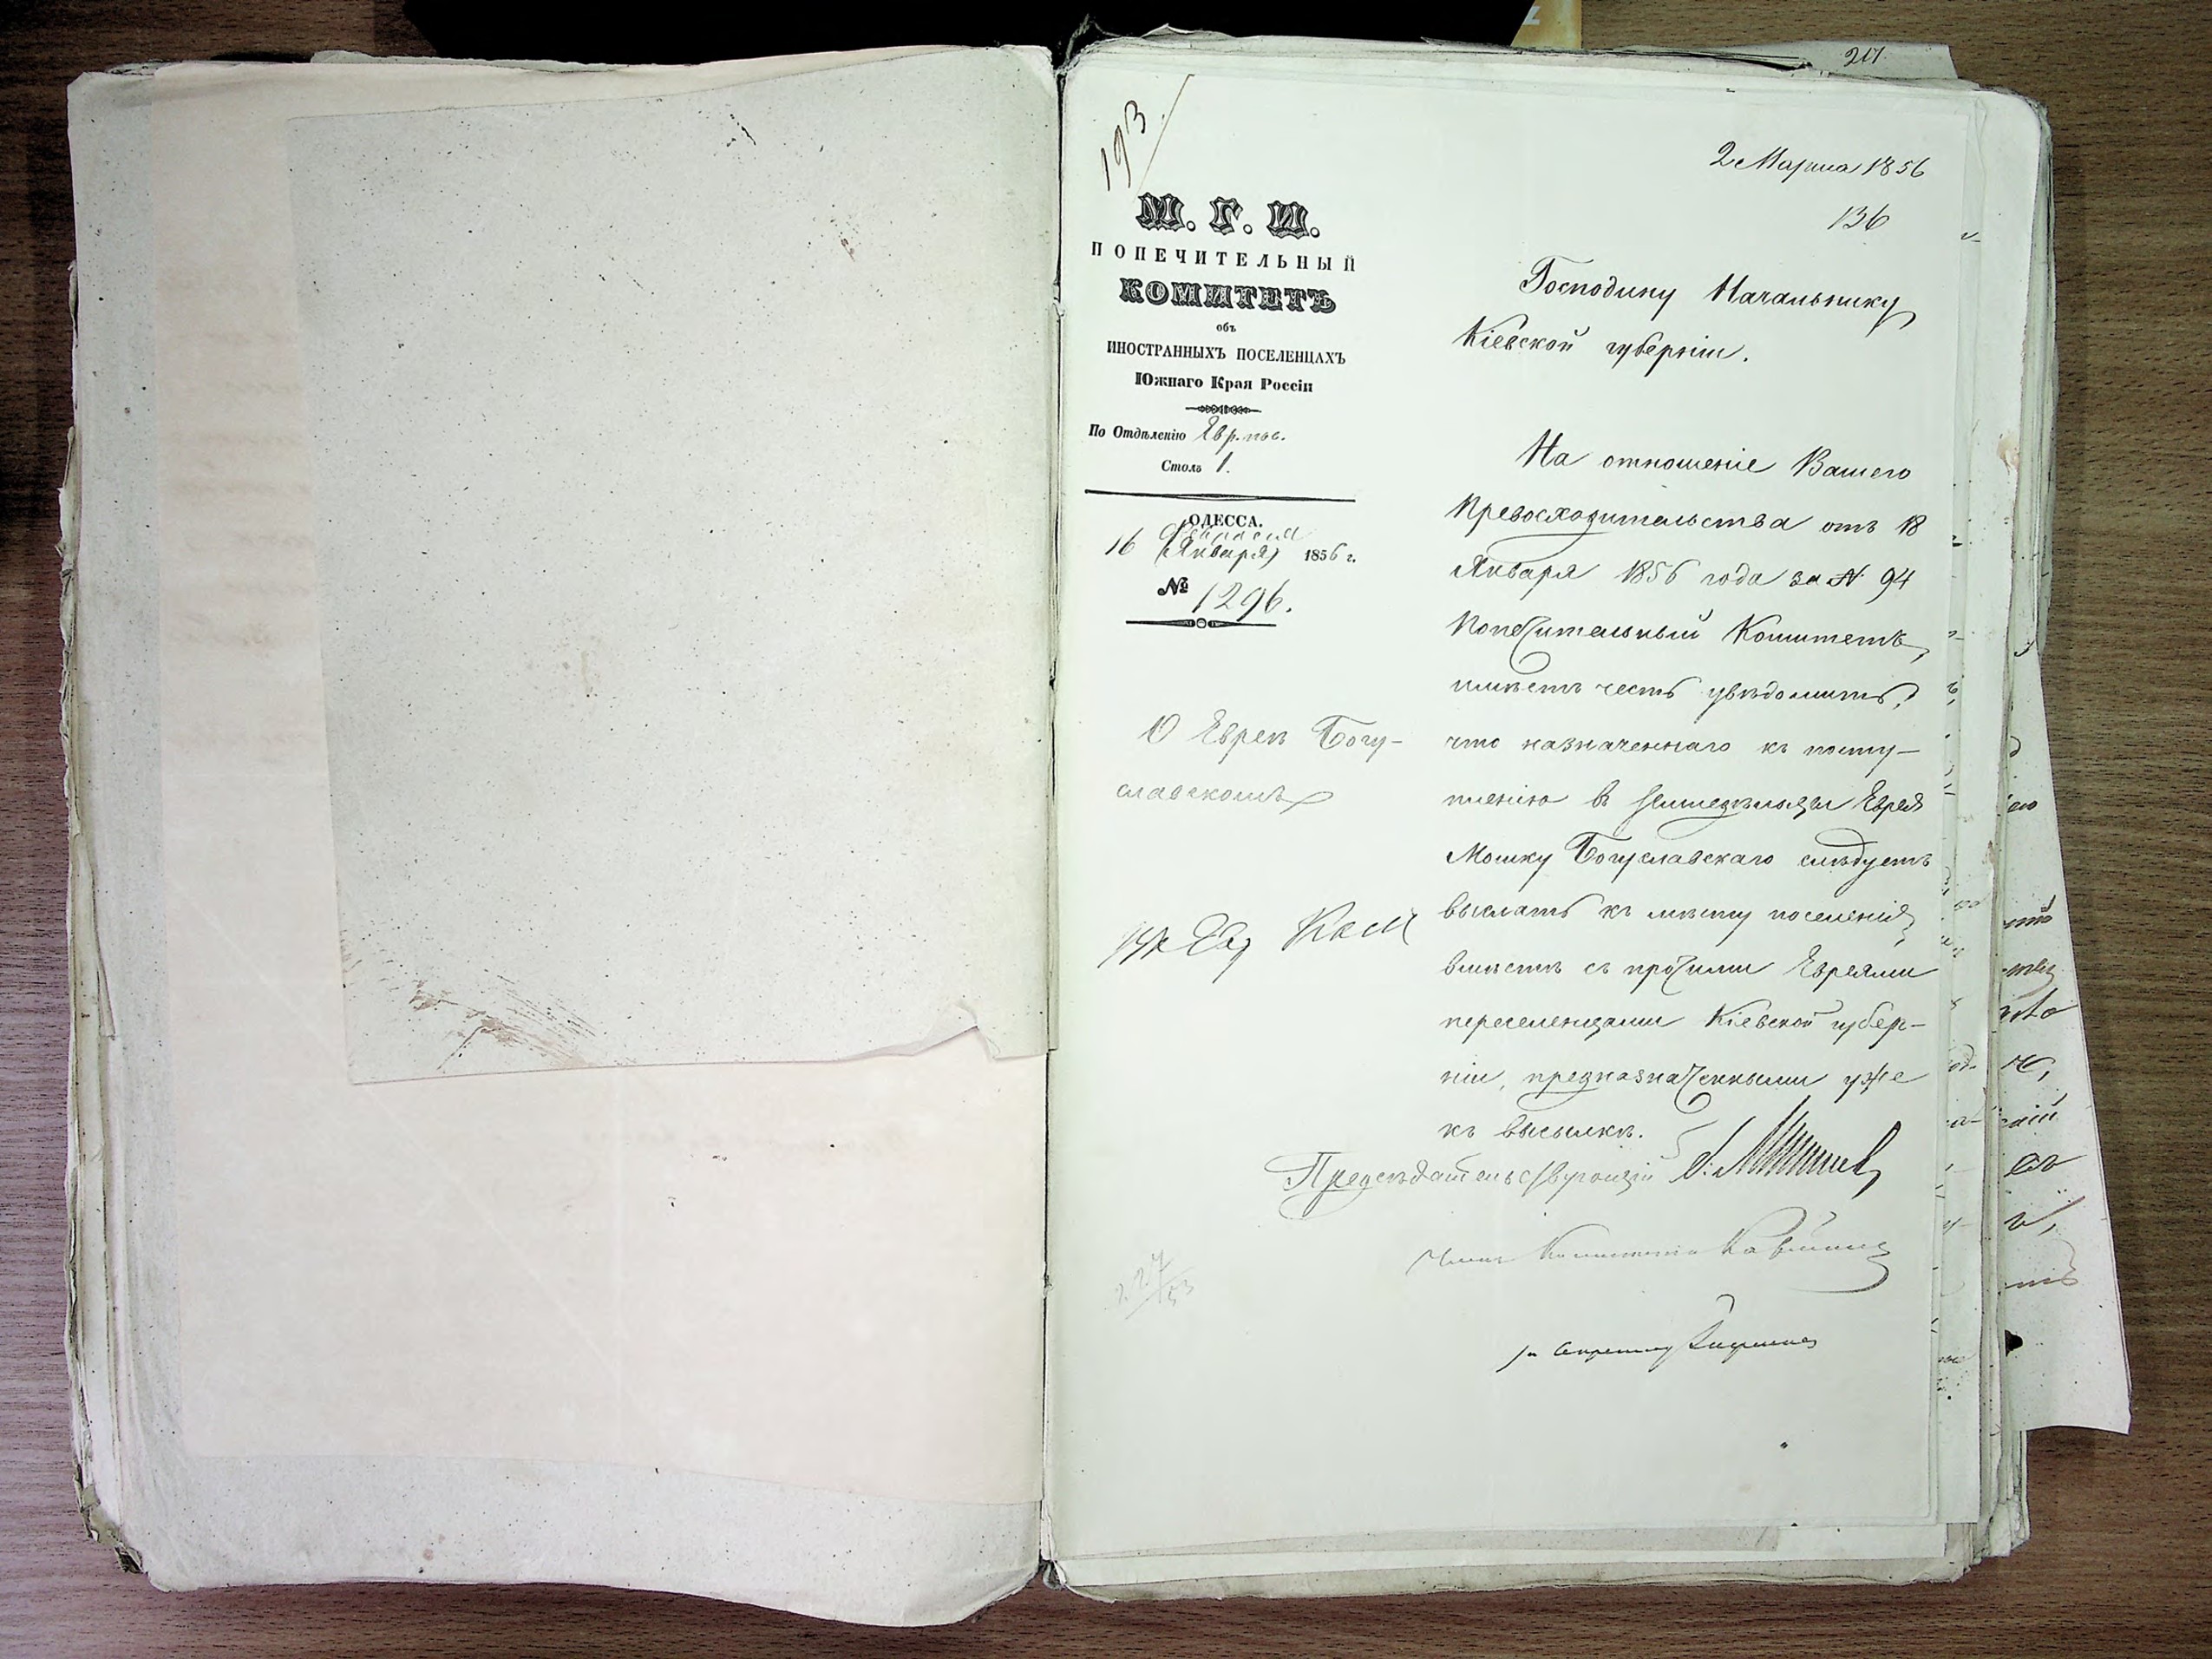 217
193.
2 Марта 1856
136
М. Г. И.
ПОПЕЧИТЕЛЬНЫЙ
КОМИТЕТЪ
объ
ИНОСТРАННЫХЪ ПОСЕЛЕНЦАХЪ
Южнаго Края Россіи
По Отдѣленію Евр. пос.
Столъ 1.
ОДЕССА.
Февраля
16 (Января) 1856 г.
№ 1296.
О Евреѣ Богу-
славскомъ
Господину Начальнику
Кіевской губерніи.
На отношеніе Вашего
Превосходительства отъ 18
Января 1856 года за № 94
Попечительный Комитетъ,
имѣетъ честь увѣдомить,
что назначеннаго къ посту-
пленію въ земледѣльцы Еврея
Мошку Богуславскаго слѣдуетъ
выслать къ мѣсту поселенія,
вмѣстѣ съ прочими Евреями
переселенцами Кіевской губер-
ніи, предназначенными уже
къ высылкѣ.
Предсѣдательствующій
Членъ Комитета